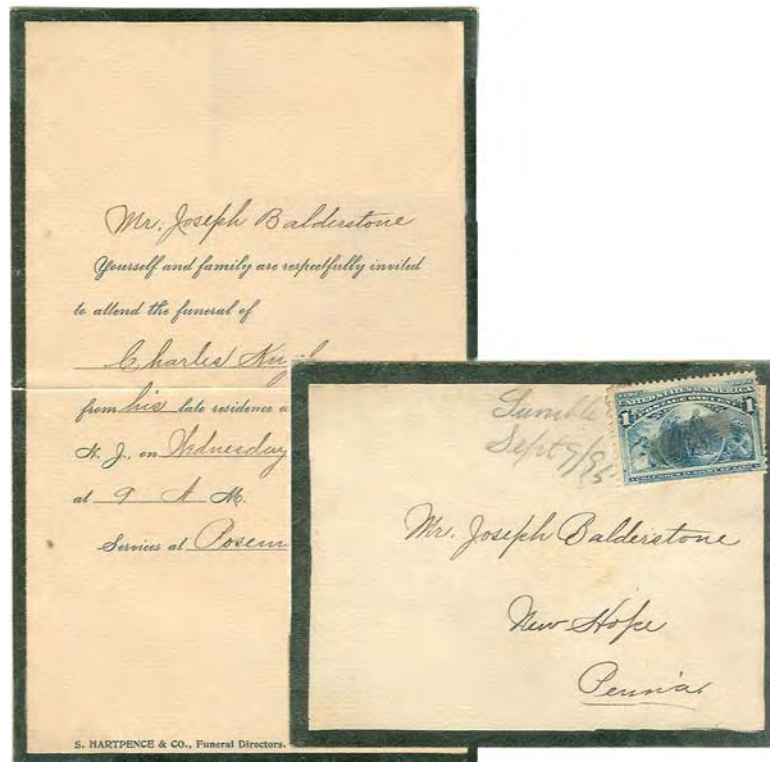 Mr. Joseph Balderstone
Yourself and family are respectfully invited
to attend the funeral of
Charles
from his late residence
N. J., on Wednesday
at 9 A M.
Services at
S. HARTPENCE & CO., Funeral Directors.
Sept 9/95
1 UNITED STATES OF AMERICA 1
POSTAGE ONE CENT
Mr. Joseph Balderstone
New Hope
Penn'a